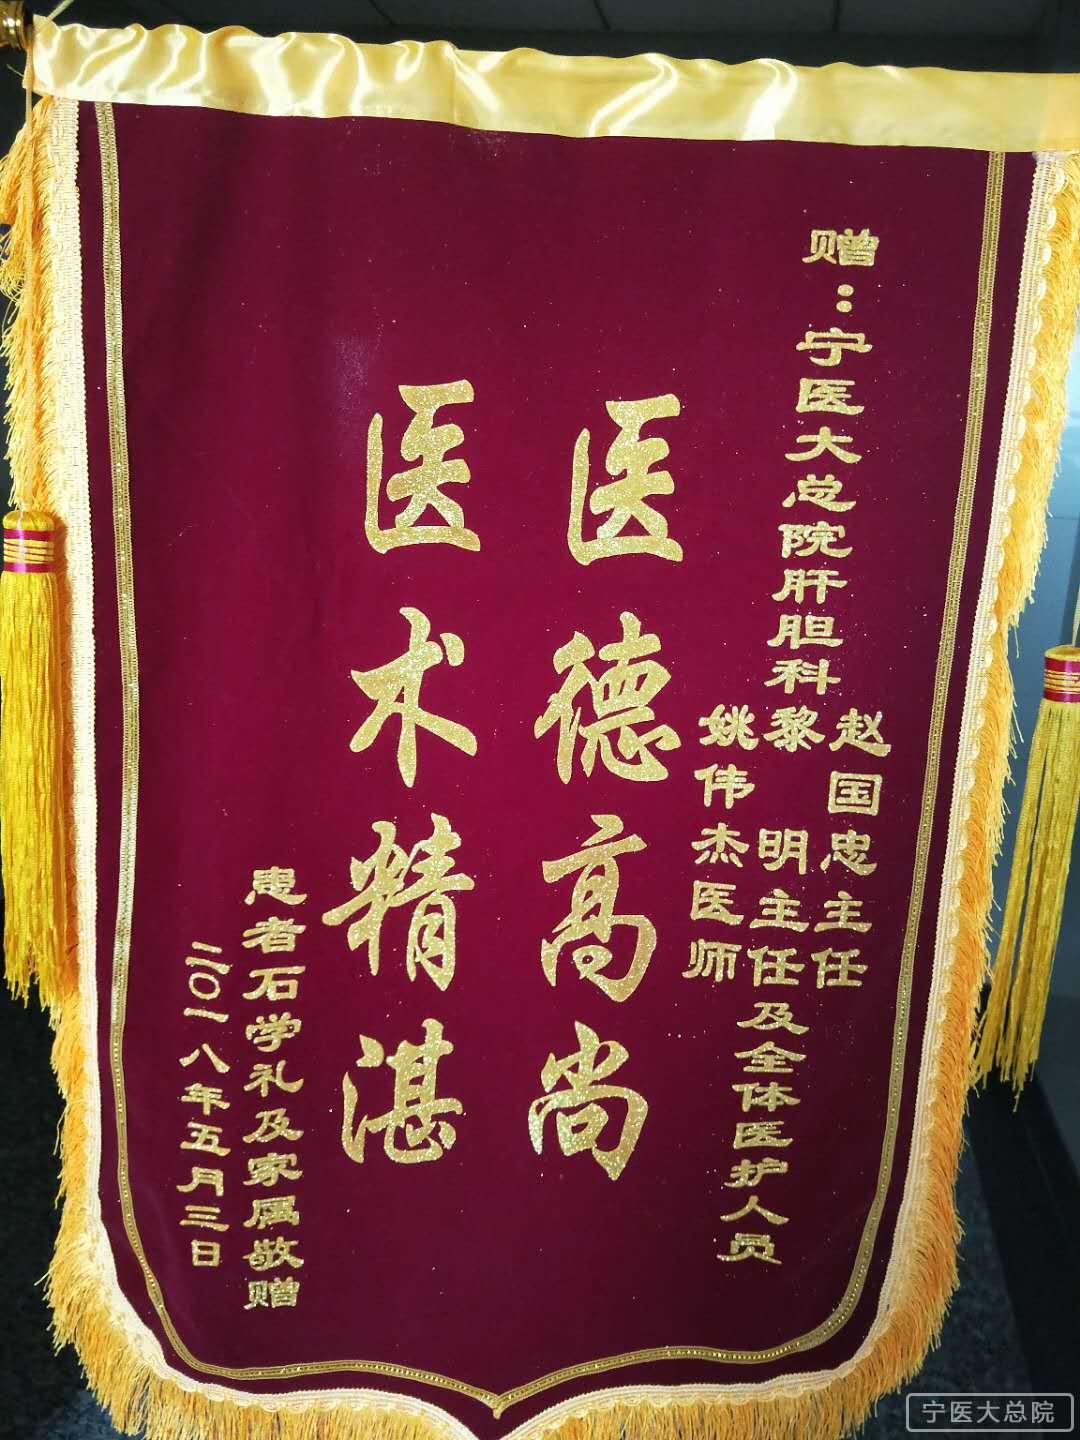 赠：宁医大总院肝胆科
赵国忠主任
黎明主任及全体医护人员
姚伟杰医师
医德高尚
医术精湛
患者石学礼及家属敬赠
二〇一八年五月三日
宁医大总院